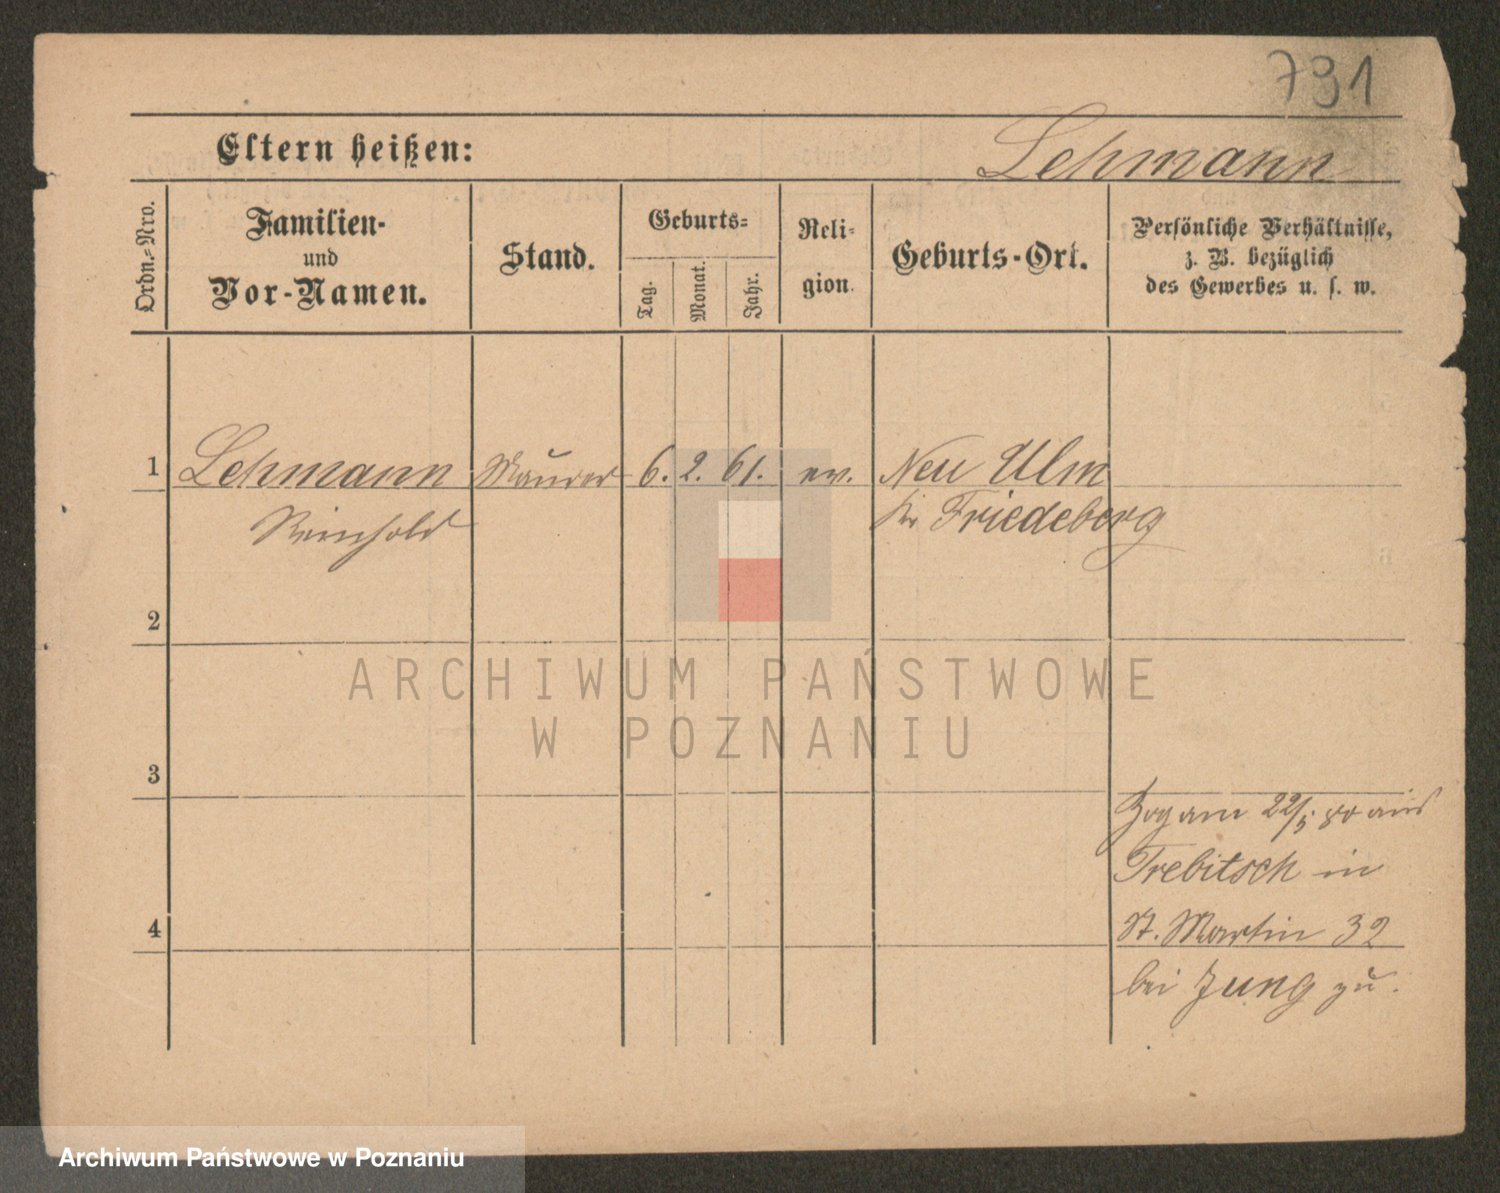 791
Eltern heißen:
Lehmann
Ordn.-Nro.
Familien-
und
Vor-Namen.
Stand.
Geburts-
Tag.
Monat.
Jahr.
Reli-
gion.
Geburts-Ort.
Persönliche Verhältnisse,
z. B. bezüglich
des Gewerbes u. s. w.
1 Lehmann Maurer 6. 2. 61. ev. Neu Ulm
Reinhold Kr Friedeberg
2
ARCHIWUM PAŃSTWOWE
W POZNANIU
3
Zog am 22/5 80 aus
Trebitsch in
4 St. Martin 32
bei Jung zu.
Archiwum Państwowe w Poznaniu